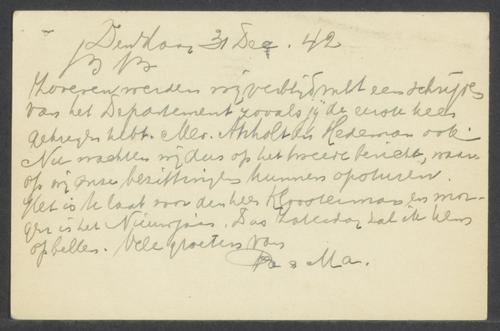 Den Haag 31 Dec. 42
Zooeven werden wij verblijd met een schrijven
van het Departement zooals jij de eerste keer
gekregen hebt. Mevr. Hedeman ook.
Nu wachten wij dus op het tweede bericht, waar
op wij onze bezittingen kunnen opsturen.
Het is te laat voor den heer Kloosterman en mor-
gen is het Nieuwjaar. Dus Zaterdag zal ik hem
opbellen. Vele groeten van
Pa & Ma.